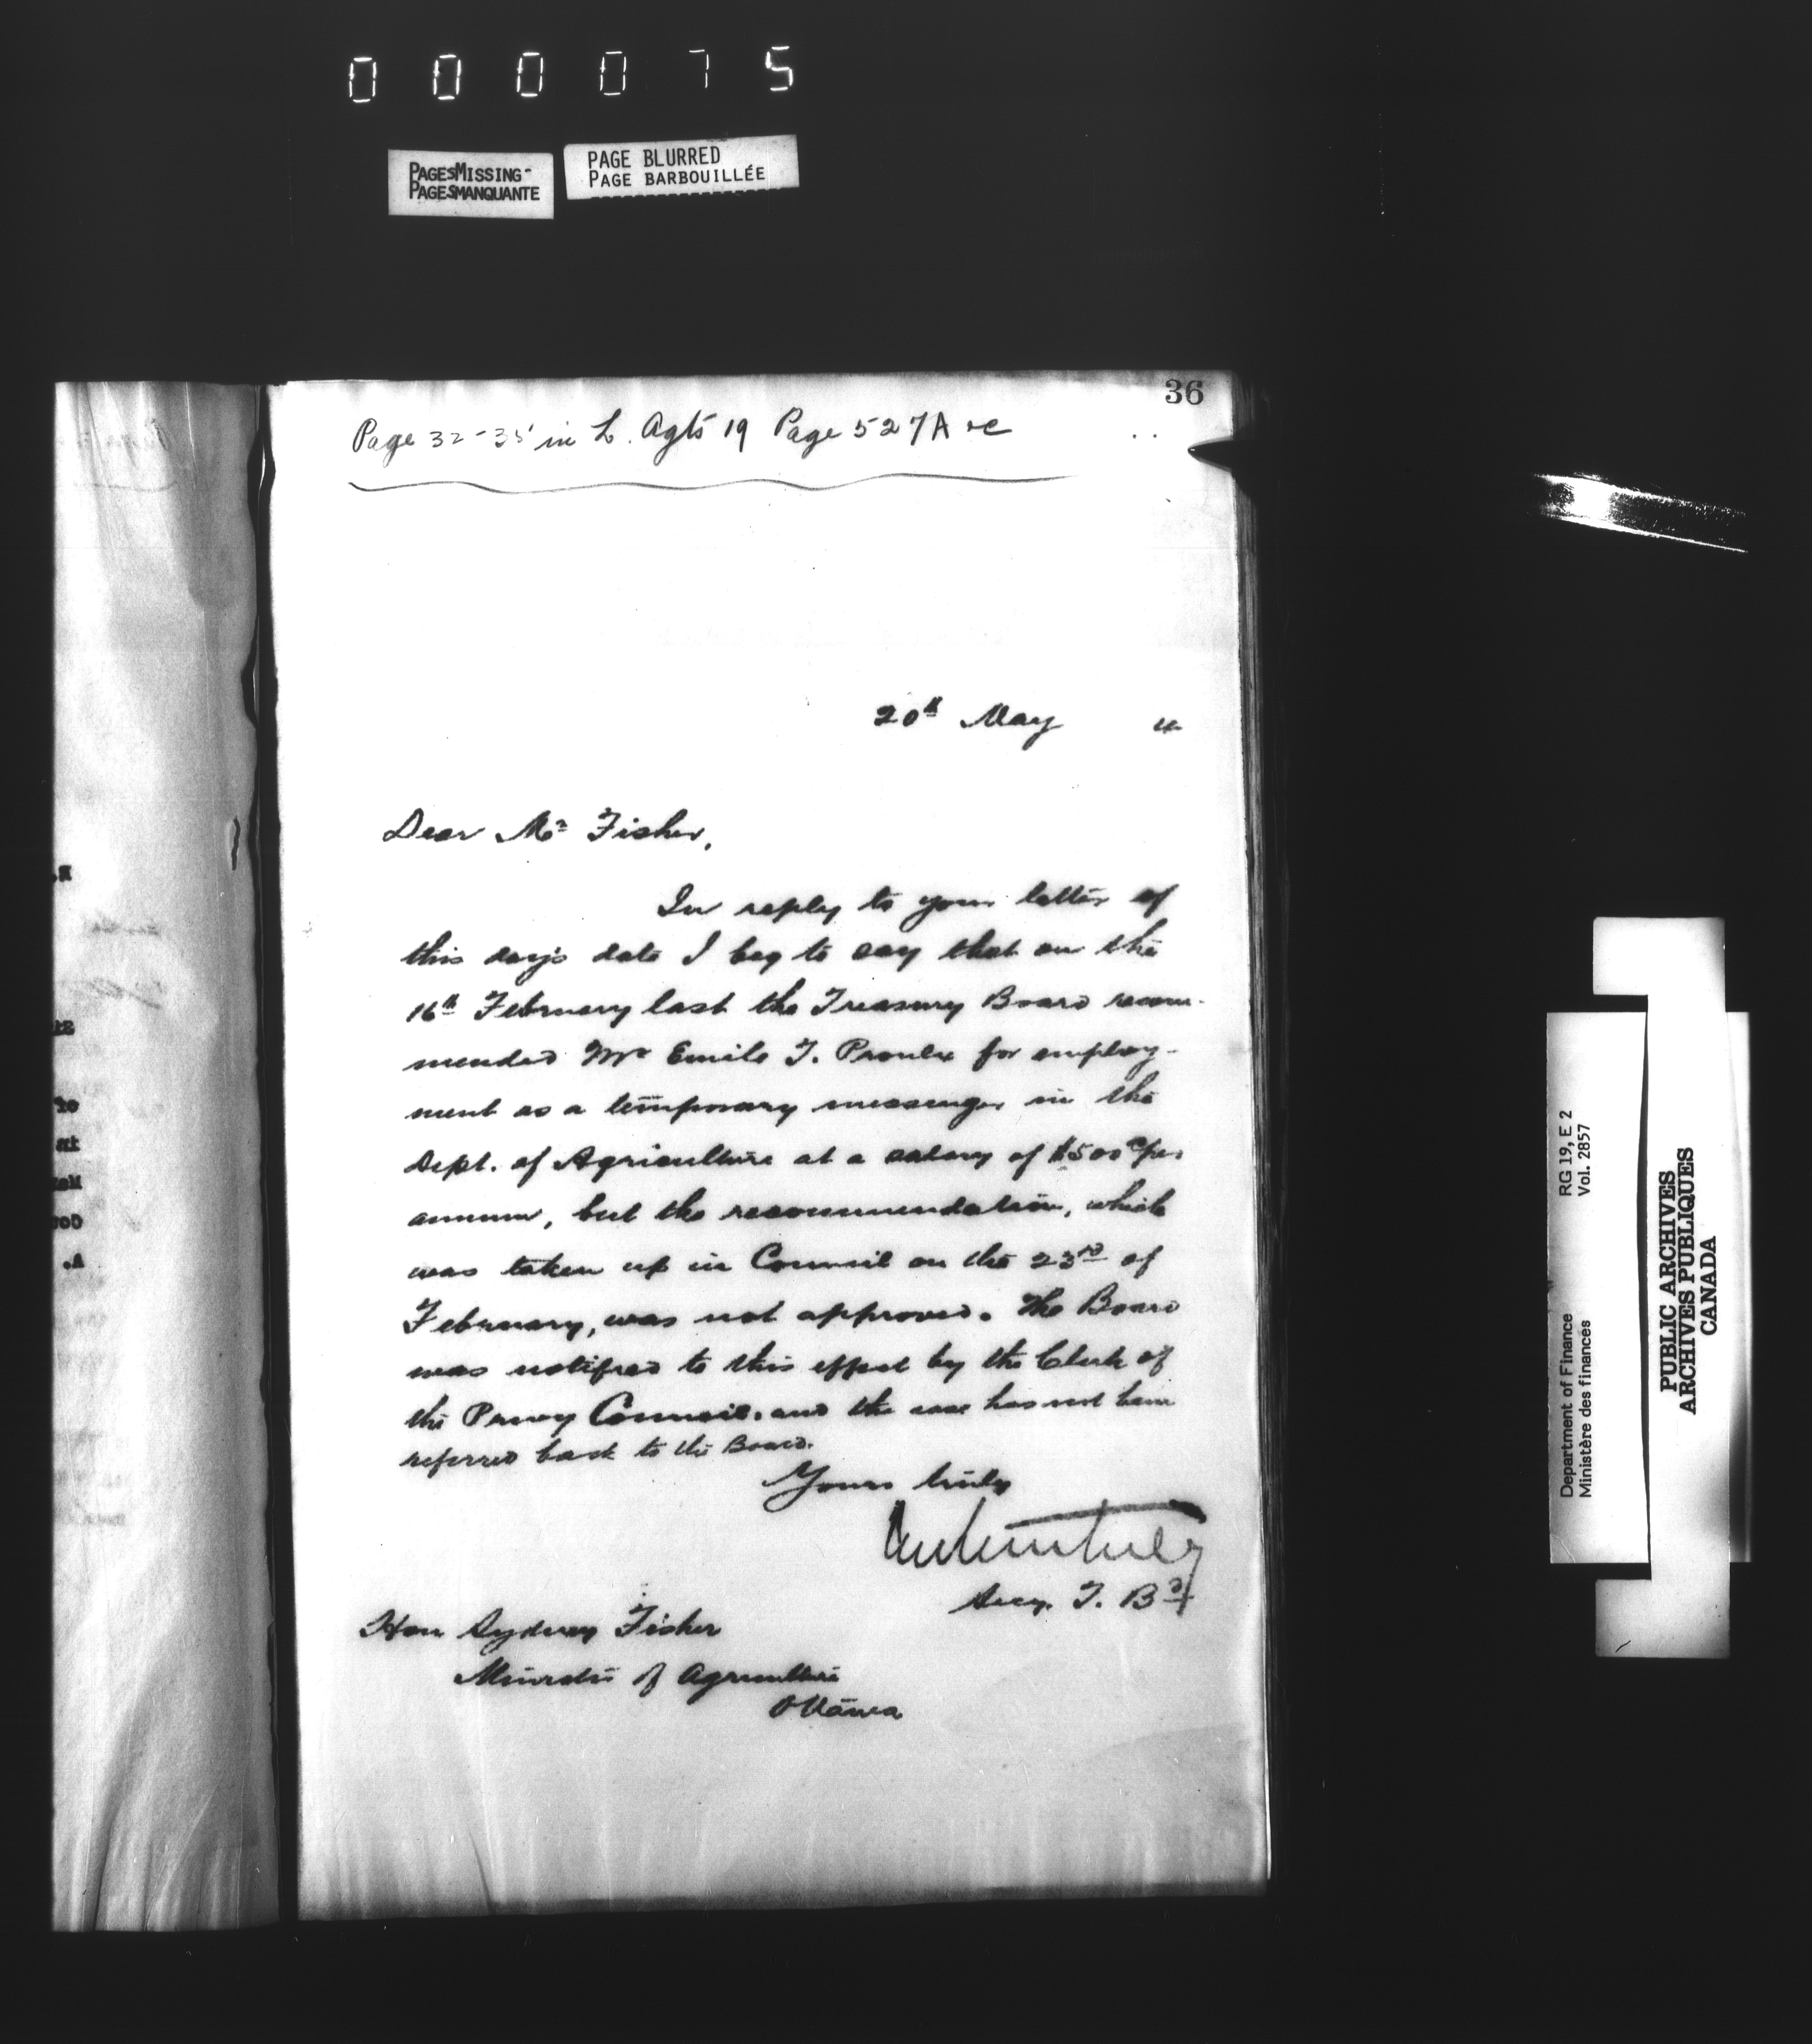 000075
PAGESMISSING-
PAGESMANQUANTE
PAGE BLURRED
PAGE BARBOUILLÉE
36
Page 32-35 in L. Agts 19 Page 527A &c
20th May 4
Dear Mr Fisher,
In reply to your letter of
this day's date I beg to say that on the
16th February last the Treasury Board recom-
mended Mr Emile T. Proulx for employ-
ment as a temporary messenger in the
Dept. of Agriculture at a salary of $500 per
annum, but the recommendation, which
was taken up in Council on the 23rd of
February, was not approved. The Board
was notified to this effect by the Clerk of
the Privy Council, and the case has not been
referred back to the Board.
Yours truly
Secy. T. Bd
Hon Sydney Fisher
Minister of Agriculture
Ottawa
Department of Finance RG 19, E 2
Ministère des finances Vol. 2857
PUBLIC ARCHIVES
ARCHIVES PUBLIQUES
CANADA